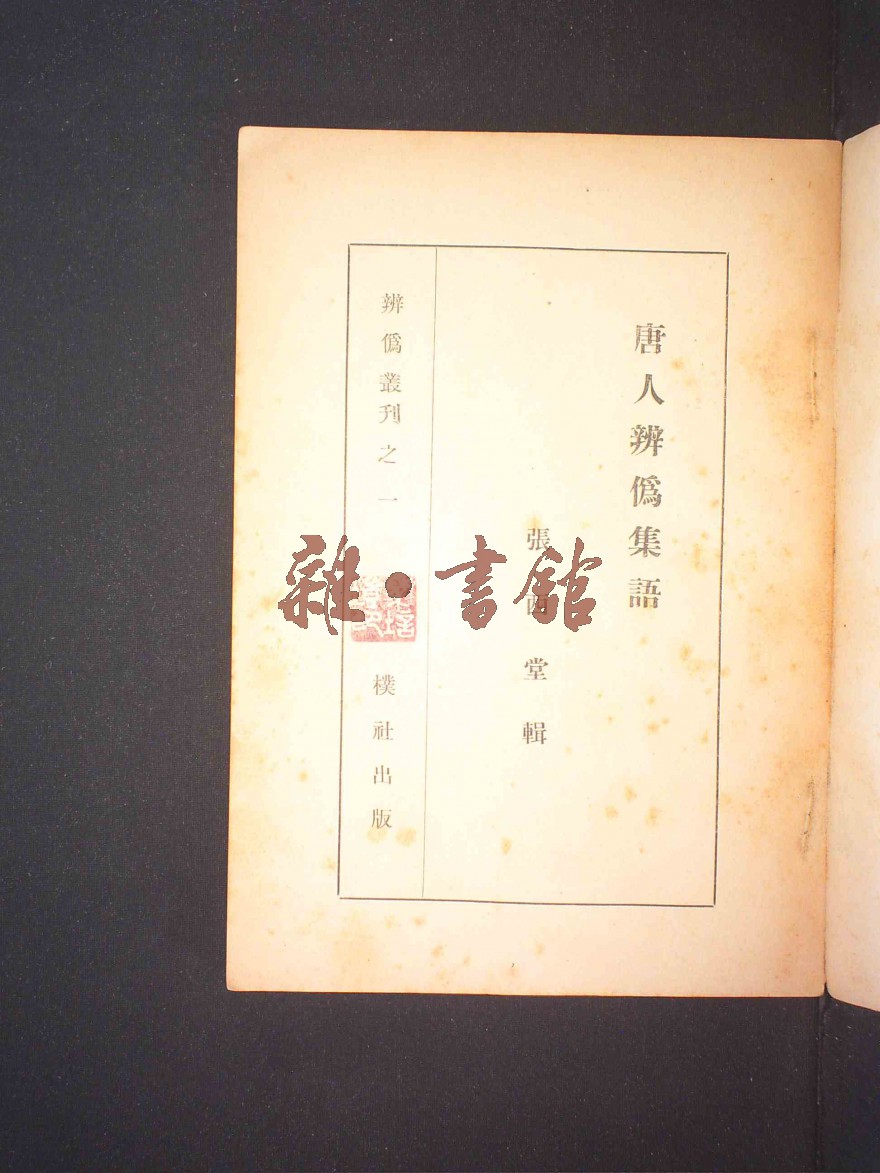 唐人辨僞集語
張西堂輯
辨僞叢刊之一
樸社出版
雜·書館